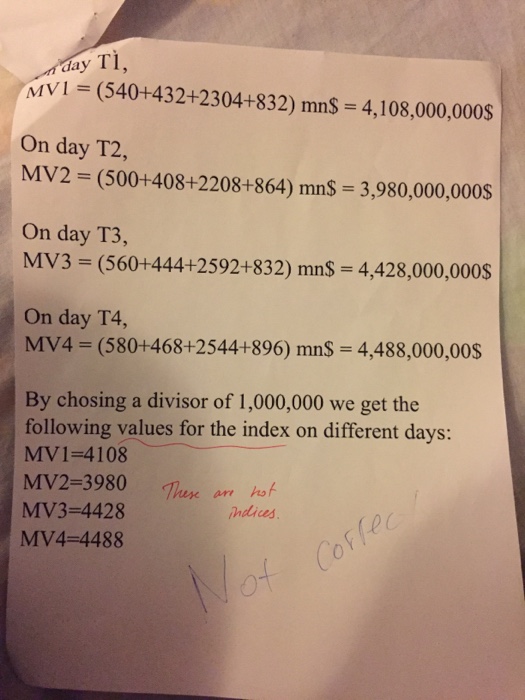 On day T1,
MV1 = (540+432+2304+832) mn$ = 4,108,000,000$
On day T2,
MV2 = (500+408+2208+864) mn$ = 3,980,000,000$
On day T3,
MV3 = (560+444+2592+832) mn$ = 4,428,000,000$
On day T4,
MV4 = (580+468+2544+896) mn$ = 4,488,000,00$
By chosing a divisor of 1,000,000 we get the
following values for the index on different days:
MV1=4108
MV2=3980
MV3=4428
MV4=4488
These are not
indices.
Not correct